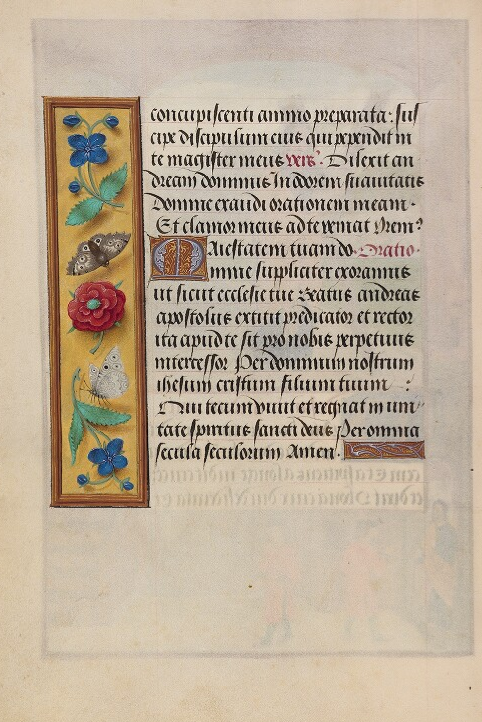 concupiscenti animo preparata. sus
cipe discipulum eius qui pependit in
te magister meus vers'. Dilexit an
dream dominus In odorem suavitatis
Domine exaudi orationem meam.
Et clamor meus ad te veniat Orem'
Maiestatem tuam do Oratio.
mine suppliciter exoramus
ut sicut ecclesie tue Beatus andreas
apostolus extitit predicator et rector
ita apud te sit pro nobis perpetuus
intercessor Per dominum nostrum
ihesum cristum filium tuum :
Qui tecum vivit et regnat in uni
tate spiritus sancti deus Per omnia
secula seculorum Amen.